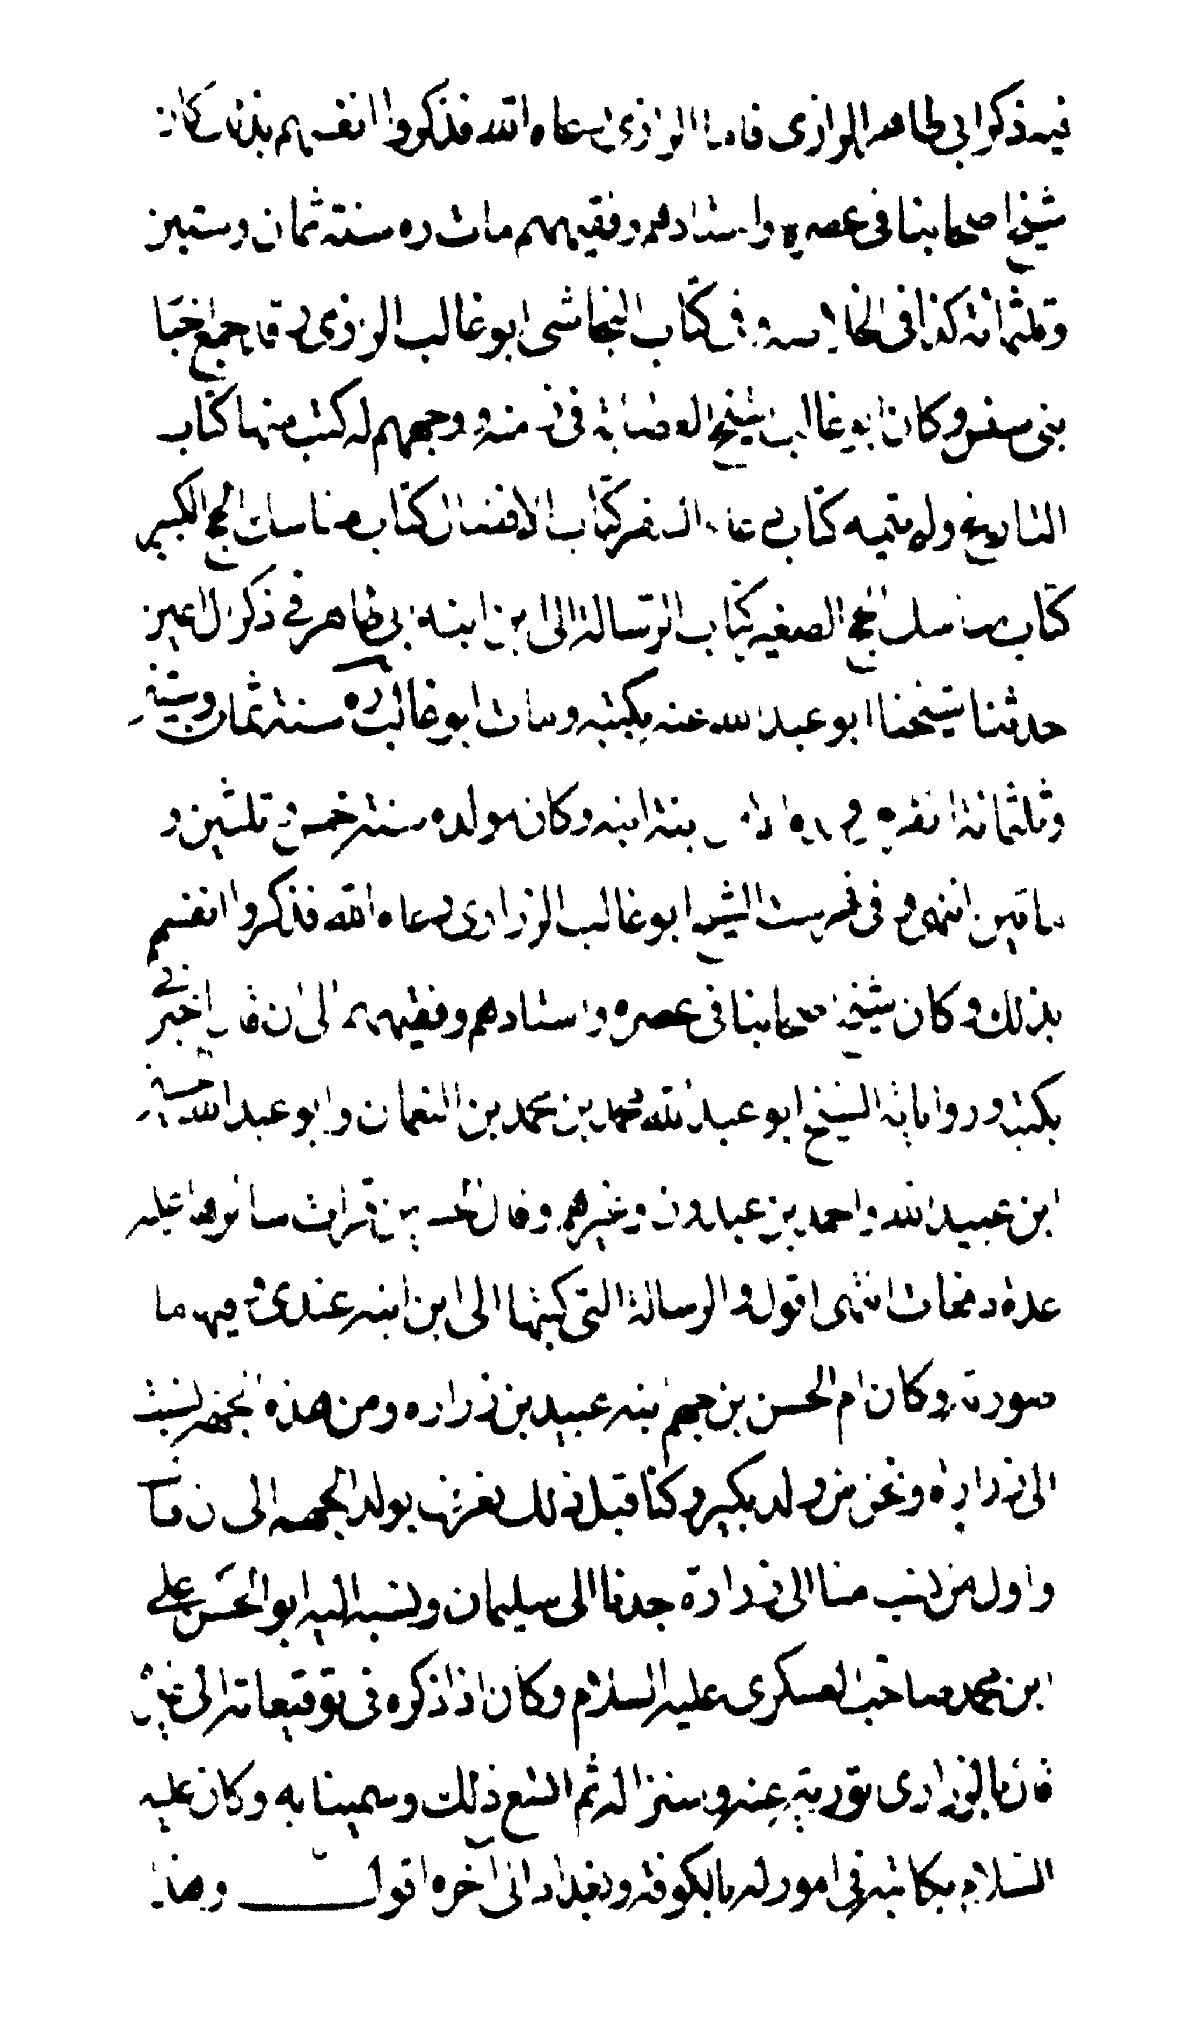 فيه ذكر ابي طاهر الزراري فاما الزراري رعاه الله فذكروا انفسهم بذلك كان
شيخ اصحابنا في عصره واستادهم وفقيههم مات ره سنة ثمان وستين
وثلثمائة كذا في الخلاصه و في كتاب النجاشي ابو غالب الزراري و قد جمع اخبا
بني سنسن وكان ابو غالب شيخ العصابة في زمنه و وجههم له كتب منها كتاب
التاريخ ولم يتمه كتاب دعاء السفر كتاب الافضال كتاب مناسك الحج الكبير
كتاب مناسك الحج الصغير كتاب الرسالة الى ابن ابنه ابي طاهر في ذكر ال اعين
حدثنا شيخنا ابو عبد الله عنه بكتبه ومات ابو غالب ره سنة ثمان وستين
وثلثمائة انقرض ولده الا من بنة ابنه وكان مولده سنة خمس و ثلثين و
مأتين انتهى و في فهرست الشيخ ابو غالب الزراري رعاه الله فذكروا انفسهم
بذلك و كان شيخ اصحابنا في عصره واستادهم وفقيههم الى ان قال اخبرني
بكتبه و رواياته الشيخ ابو عبد الله محمد بن محمد بن النعمان وابو عبد الله الحسين
ابن عبيد الله واحمد بن عبدون وغيرهم وقال الحسين قرات سائرها عليه
عدة دفعات انتهى اقول و الرسالة التي كتبها الى ابن ابنه عندي و فيها ما
صورته و كان ام الحسن بن جهم ابنه عبيد بن زراره ومن هذه الجهة نسبت
الى زراره ونحن من ولد بكير و كنا قبل ذلك نعرف بولد الجهم الى ان قال
و اول من نسب منا الى زرارة جدنا الى سليمان ونسبه اليه ابو الحسن علي
ابن محمد صاحب العسكري عليه السلام وكان اذا ذكره في توقيعاته الى غيره
قال الزراري تورية عنه و سترا له ثم اتسع ذلك وسمينا به وكان عليه
السلام يكاتبه في امور له بالكوفة وبغداد الى اخره اقول وهذا